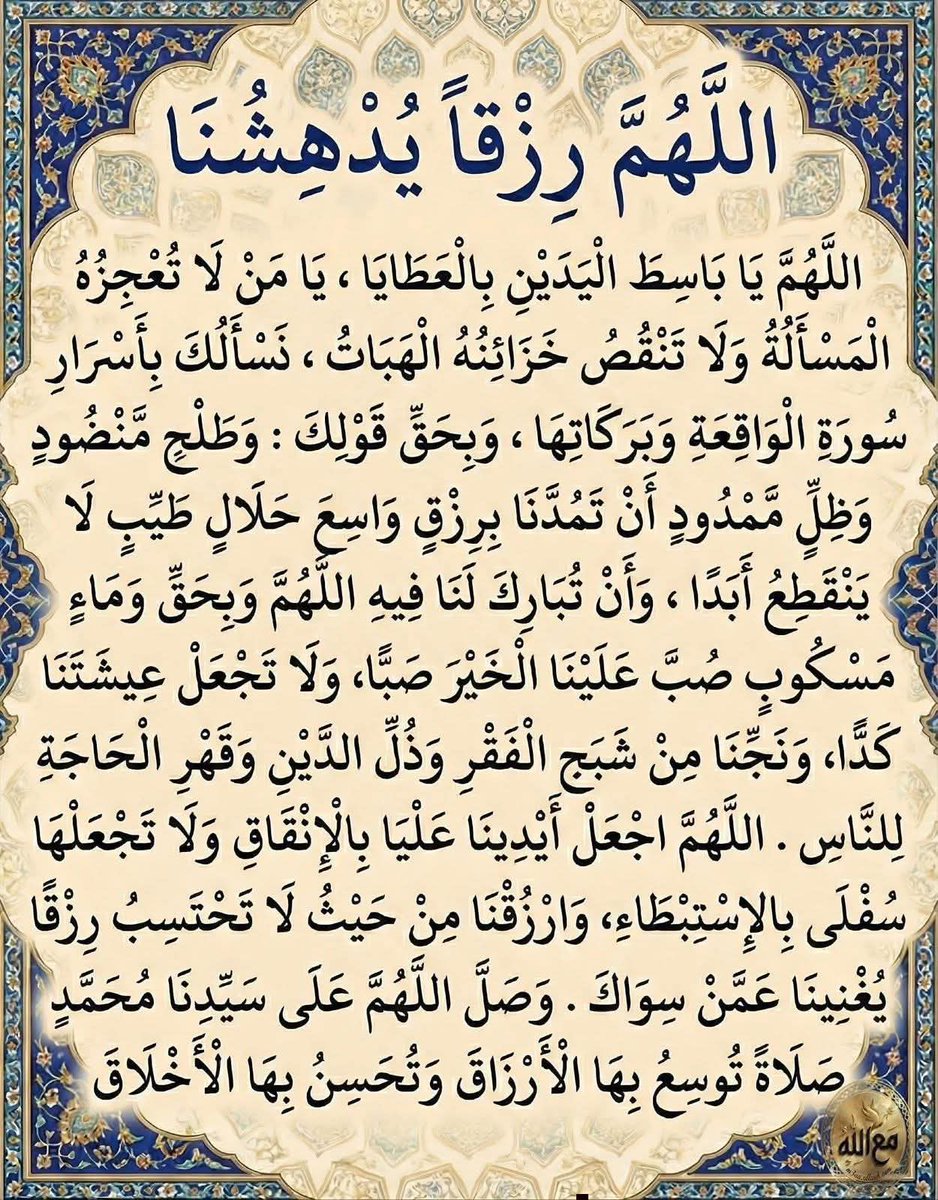 اللَّهُمَّ رِزْقاً يُدْهِشُنَا
اللَّهُمَّ يَا بَاسِطَ الْيَدَيْنِ بِالْعَطَايَا ، يَا مَنْ لَا تُعْجِزُهُ
الْمَسْأَلُةُ وَلَا تَنْقُصُ خَزَائِنُهُ الْهَبَاتُ ، نَسْأَلُكَ بِأَسْرَارِ
سُورَةِ الْوَاقِعَةِ وَبَرَكَاتِهَا ، وَبِحَقِّ قَوْلِكَ : وَطَلْحٍ مَّنْضُودٍ
وَظِلٍّ مَّمْدُودٍ أَنْ تَمُدَّنَا بِرِزْقٍ وَاسِعَ حَلَالٍ طَيِّبٍ لَا
يَنْقَطِعُ أَبَدًا ، وَأَنْ تُبَارِكَ لَنَا فِيهِ اللَّهُمَّ وَبِحَقِّ وَمَاءٍ
مَسْكُوبٍ صُبَّ عَلَيْنَا الْخَيْرَ صَبًّا، وَلَا تَجْعَلْ عِيشَتَنَا
كَدًّا، وَنَجِّنَا مِنْ شَبَجِ الْفَقْرِ وَذُلِّ الدَّيْنِ وَقَهْرِ الْحَاجَةِ
لِلنَّاسِ . اللَّهُمَّ اجْعَلْ أَيْدِينَا عَلْيَا بِالْإِنْقَاقِ وَلَا تَجْعَلْهَا
سُفْلَى بِالإِسْتِبْطَاءِ، وَارْزُقْنَا مِنْ حَيْثُ لَا تَحْتَسِبُ رِزْقًا
يُغْنِينَا عَمَّنْ سِوَاكَ . وَصَلَّ اللَّهُمَّ عَلَى سَيِّدِنَا مُحَمَّدٍ
صَلَاةً تُوسِعُ بِهَا الْأَرْزَاقَ وَتُحَسِنُ بِهَا الْأَخْلَاقَ
مع الله